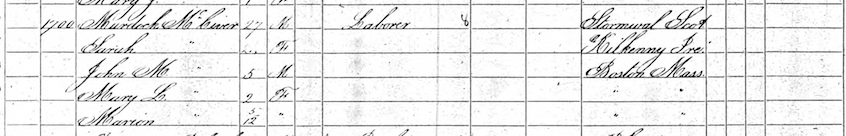 Mary J.
1700 Murdoch McCiver 27 M Laborer 8 Stornwal Scot
Sarah " F Kilkenny Ire.
John M " 5 M Boston Mass.
Mary L. " 2 F " "
Marion " 5/12 " " "